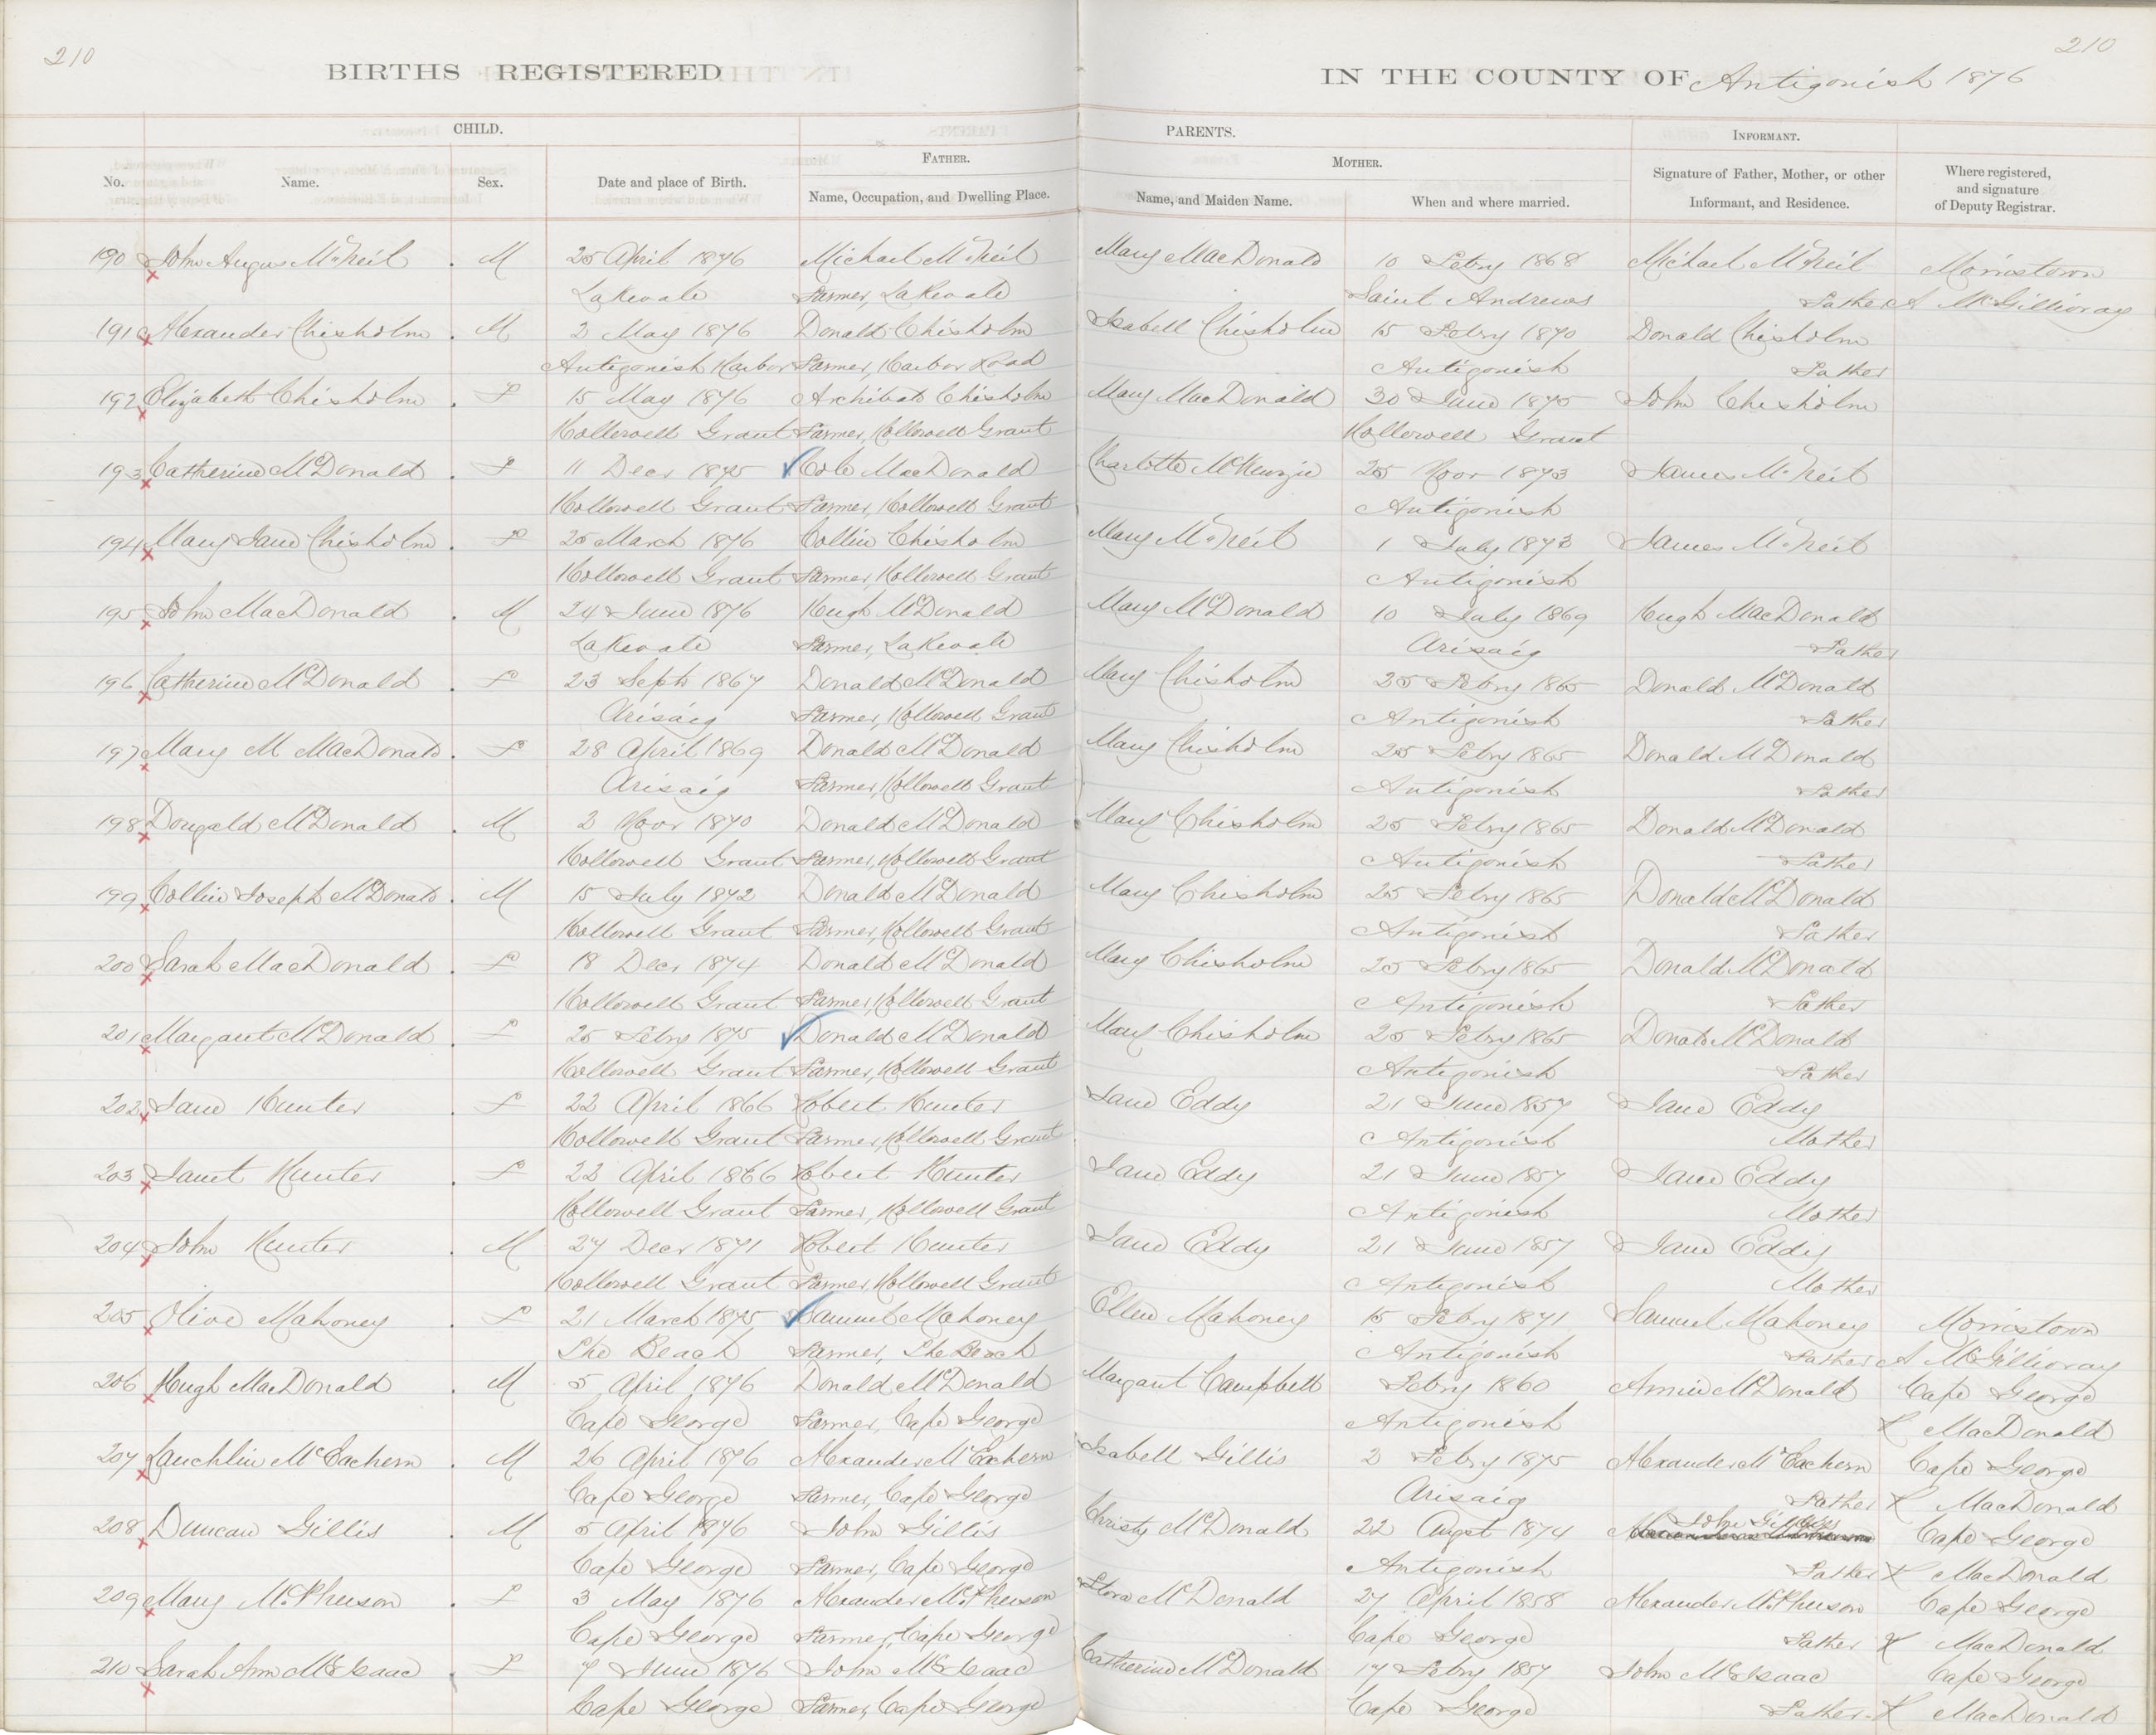 210
210
BIRTHS REGISTERED
IN THE COUNTY OF Antigonish 1876
CHILD.
PARENTS.
INFORMANT.
FATHER.
MOTHER.
No.
Name.
Sex.
Date and place of Birth.
Name, Occupation, and Dwelling Place.
Name, and Maiden Name.
When and where married.
Signature of Father, Mother, or other
Informant, and Residence.
Where registered,
and signature
of Deputy Registrar.
190 John Angus McNeil . M 25 April 1876 Michael McNeil Mary MacDonald 10 Febry 1868 Michael McNeil Morristown
Lakevale Farmer, Lakevale Saint Andrews Father A McGillivray
191 Alexander Chisholm . M 2 May 1876 Donald Chisholm Isabell Chisholm 15 Febry 1870 Donald Chisholm
Antigonish Harbor Farmer, Harbor Road Antigonish Father
192 Elizabeth Chisholm . F 15 May 1876 Archibald Chisholm Mary MacDonald 30 June 1875 John Chisholm
Hollowell Grant Farmer, Hollowell Grant Hollowell Grant
193 Catherine McDonald . F 11 Decr 1875 Cole MacDonald Charlotte McKenzie 25 Novr 1873 James McNeil
Hollowell Grant Farmer, Hollowell Grant Antigonish
194 Mary Jane Chisholm . F 25 March 1876 Collin Chisholm Mary McNeil 1 July 1873 James McNeil
Hollowell Grant Farmer, Hollowell Grant Antigonish
195 John MacDonald . M 24 June 1876 Hugh McDonald Mary McDonald 10 July 1869 Hugh MacDonald
Lakevale Farmer, Lakevale Arisaig Father
196 Catherine McDonald . F 23 Septr 1867 Donald McDonald Mary Chisholm 25 Febry 1865 Donald McDonald
Arisaig Farmer, Hollowell Grant Antigonish Father
197 Mary M MacDonald . F 28 April 1869 Donald McDonald Mary Chisholm 25 Febry 1865 Donald McDonald
Arisaig Farmer, Hollowell Grant Antigonish Father
198 Dougald McDonald . M 2 Novr 1870 Donald McDonald Mary Chisholm 25 Febry 1865 Donald McDonald
Hollowell Grant Farmer, Hollowell Grant Antigonish Father
199 Collin Joseph McDonald . M 15 July 1872 Donald McDonald Mary Chisholm 25 Febry 1865 Donald McDonald
Hollowell Grant Farmer, Hollowell Grant Antigonish Father
200 Sarah MacDonald . F 18 Decr 1874 Donald McDonald Mary Chisholm 25 Febry 1865 Donald McDonald
Hollowell Grant Farmer, Hollowell Grant Antigonish Father
201 Margaret McDonald . F 25 Febry 1875 Donald McDonald Mary Chisholm 25 Febry 1865 Donald McDonald
Hollowell Grant Farmer, Hollowell Grant Antigonish Father
202 Jane Hunter . F 22 April 1866 Robert Hunter Jane Eddy 21 June 1857 Jane Eddy
Hollowell Grant Farmer, Hollowell Grant Antigonish Mother
203 Janet Hunter . F 22 April 1866 Robert Hunter Jane Eddy 21 June 1857 Jane Eddy
Hollowell Grant Farmer, Hollowell Grant Antigonish Mother
204 John Hunter . M 27 Decr 1871 Robert Hunter Jane Eddy 21 June 1857 Jane Eddy
Hollowell Grant Farmer, Hollowell Grant Antigonish Mother
205 Olive Mahoney . F 21 March 1875 Samuel Mahoney Ellen Mahoney 15 Febry 1871 Samuel Mahoney Morristown
The Beach Farmer, The Beach Antigonish Father A McGillivray
206 Hugh MacDonald . M 5 April 1876 Donald McDonald Margaret Campbell Febry 1860 Annie McDonald Cape George
Cape George Farmer, Cape George Antigonish MacDonald
207 Lauchlin McEachern . M 26 April 1876 Alexander McEachern Isabell Gillis 2 Febry 1875 Alexander McEachern Cape George
Cape George Farmer, Cape George Arisaig Father MacDonald
208 Duncan Gillis . M 5 April 1876 John Gillis Christy McDonald 22 Augst 1874 John Gillies Cape George
Cape George Farmer, Cape George Antigonish Father MacDonald
209 Mary McPherson . F 3 May 1876 Alexander McPherson Flora McDonald 27 April 1858 Alexander McPherson Cape George
Cape George Farmer, Cape George Cape George Father MacDonald
210 Sarah Ann McIsaac . F 7 June 1876 John McIsaac Catherine McDonald 17 Febry 1857 John McIsaac Cape George
Cape George Farmer, Cape George Cape George Father MacDonald